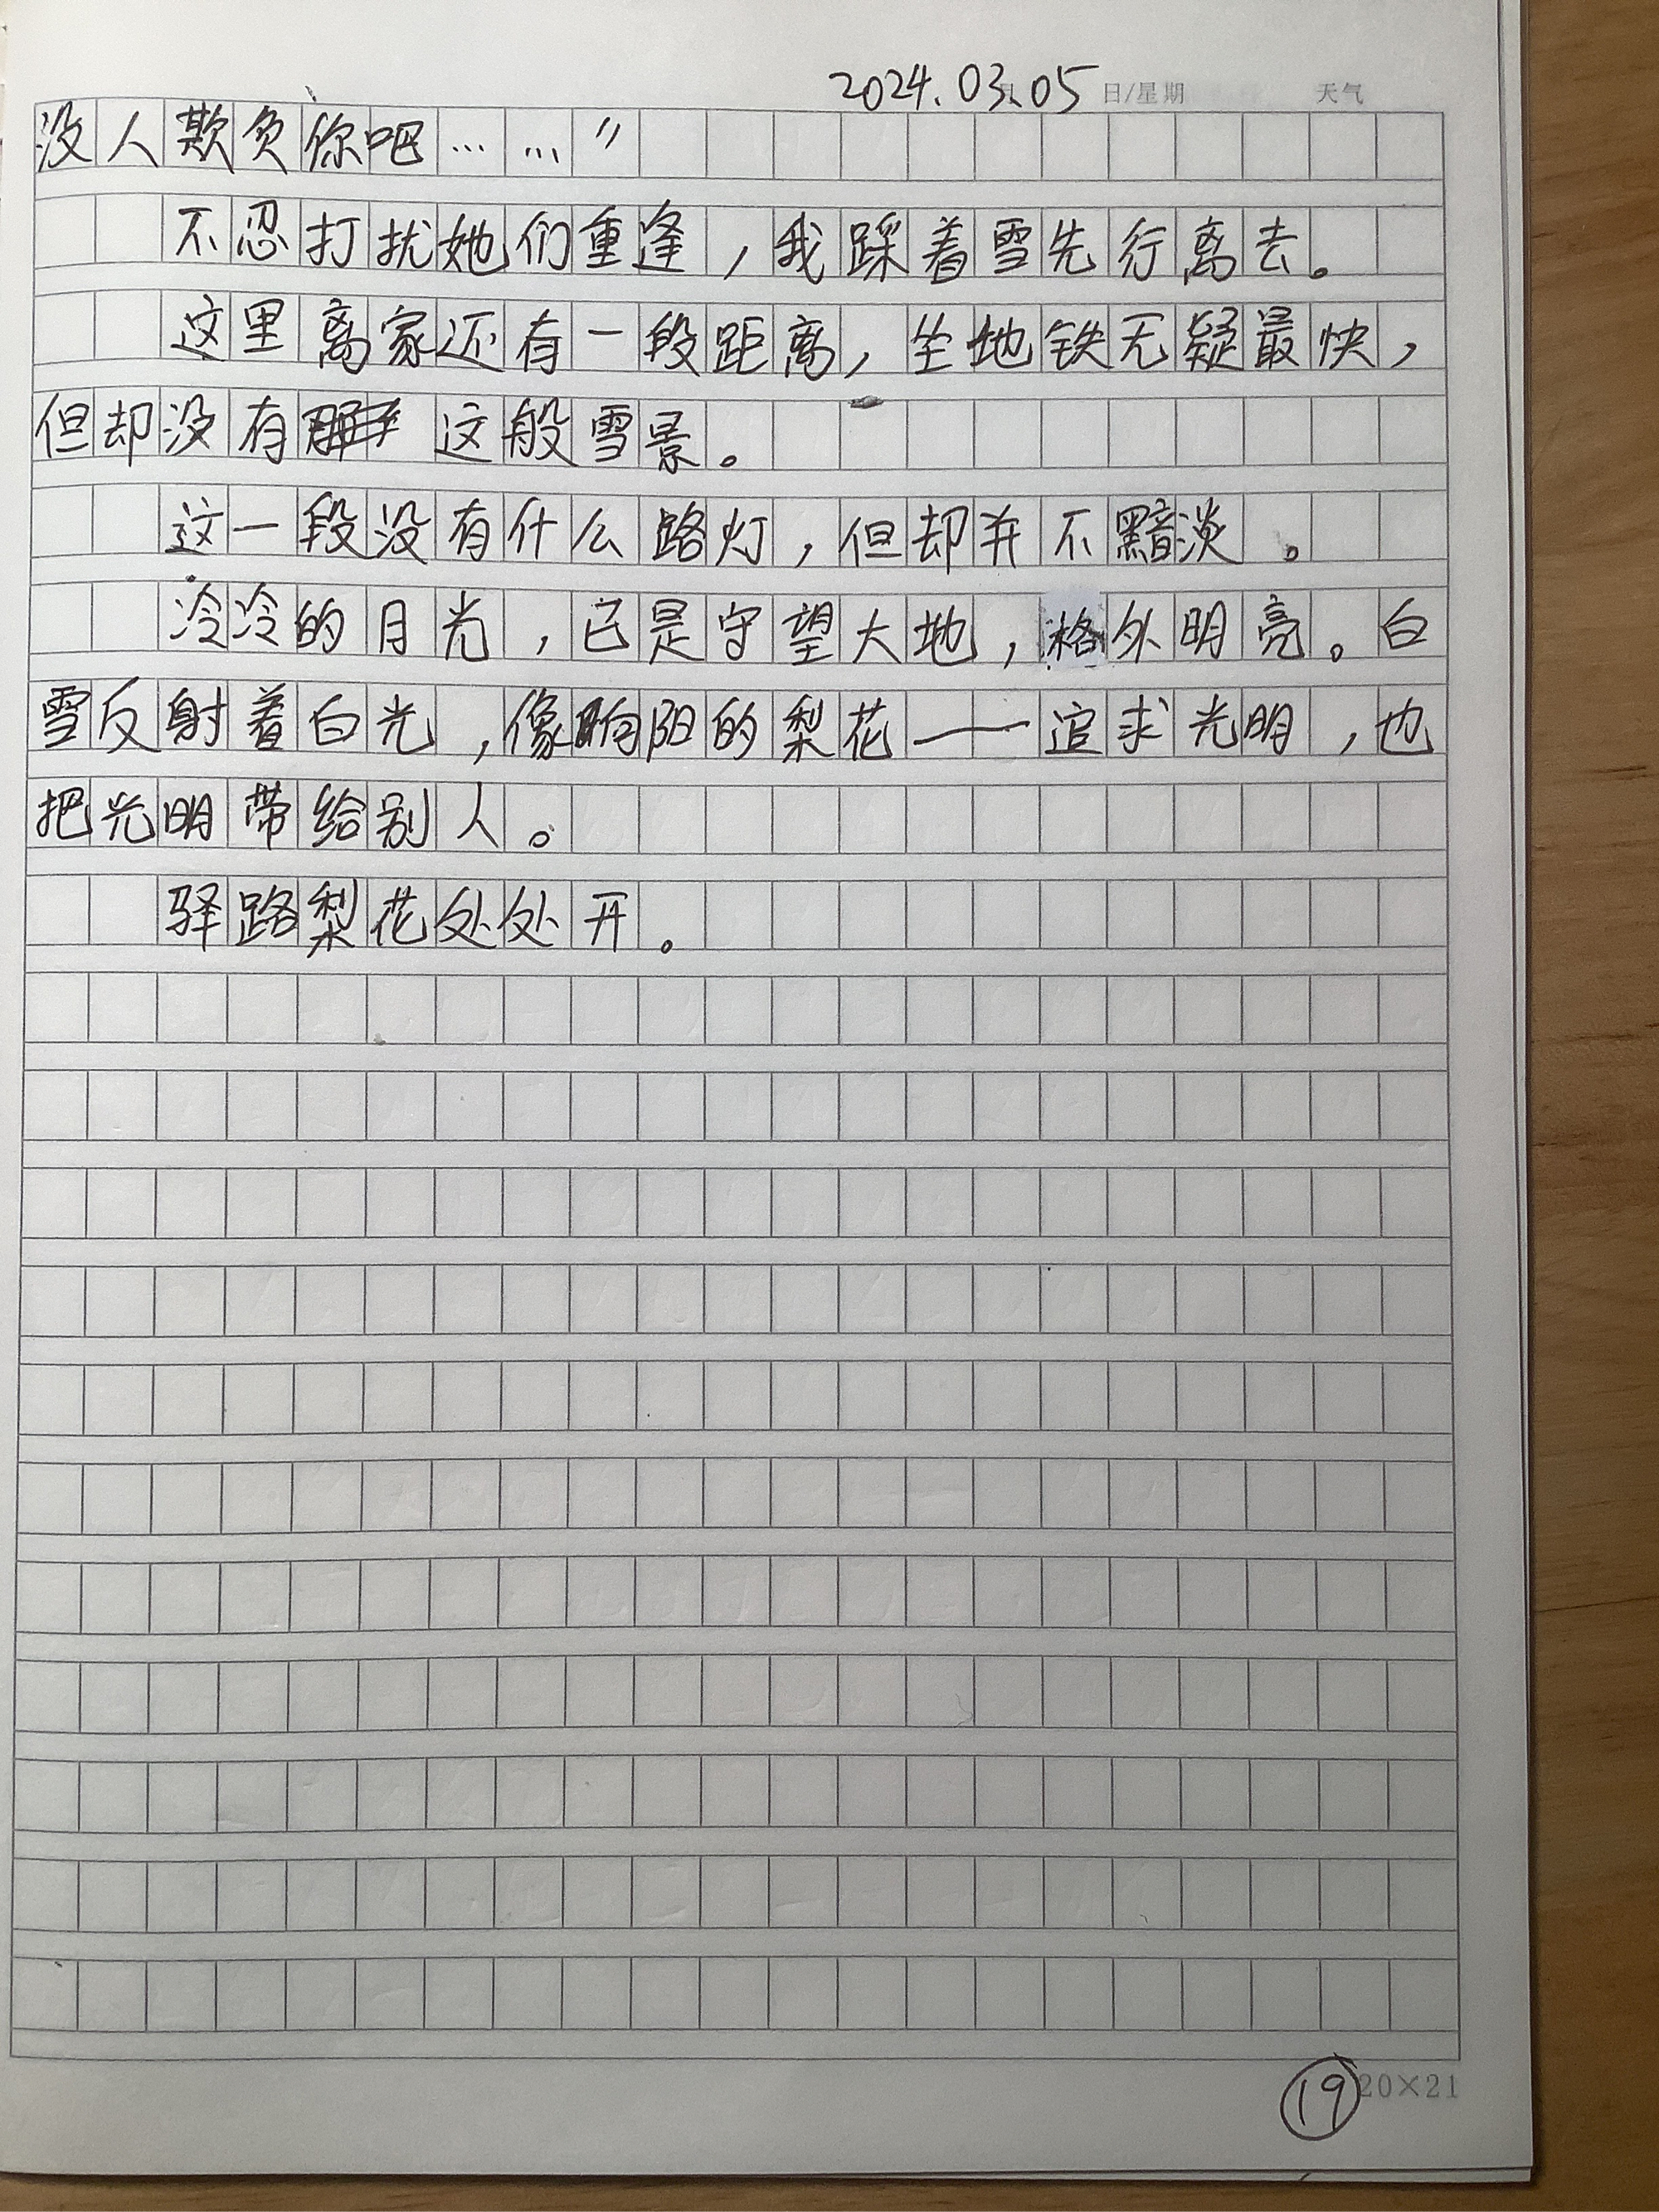 2024.03.05 日/星期 天气
没人欺负你吧……”
不忍打扰她们重逢，我踩着雪先行离去。
这里离家还有一段距离，坐地铁无疑最快，
但却没有这般雪景。
这一段没有什么路灯，但却并不黯淡。
冷冷的月光，已是守望大地，格外明亮。白
雪反射着白光，像向阳的梨花——追求光明，也
把光明带给别人。
驿路梨花处处开。
19 20×21